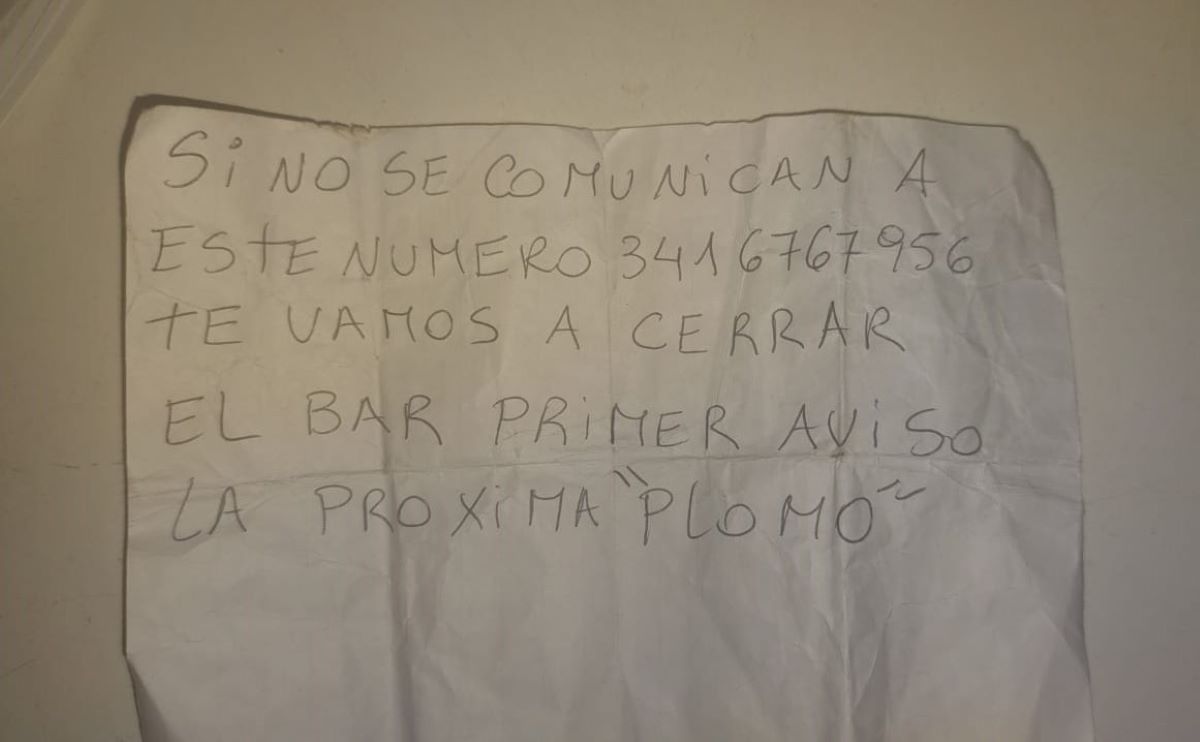 Si NO SE COMUNiCAN A
ESTE NUMERO 3416767956
TE VAMOS A CERRAR
EL BAR PRiMER AViSO
LA PROXiMA "PLOMO"